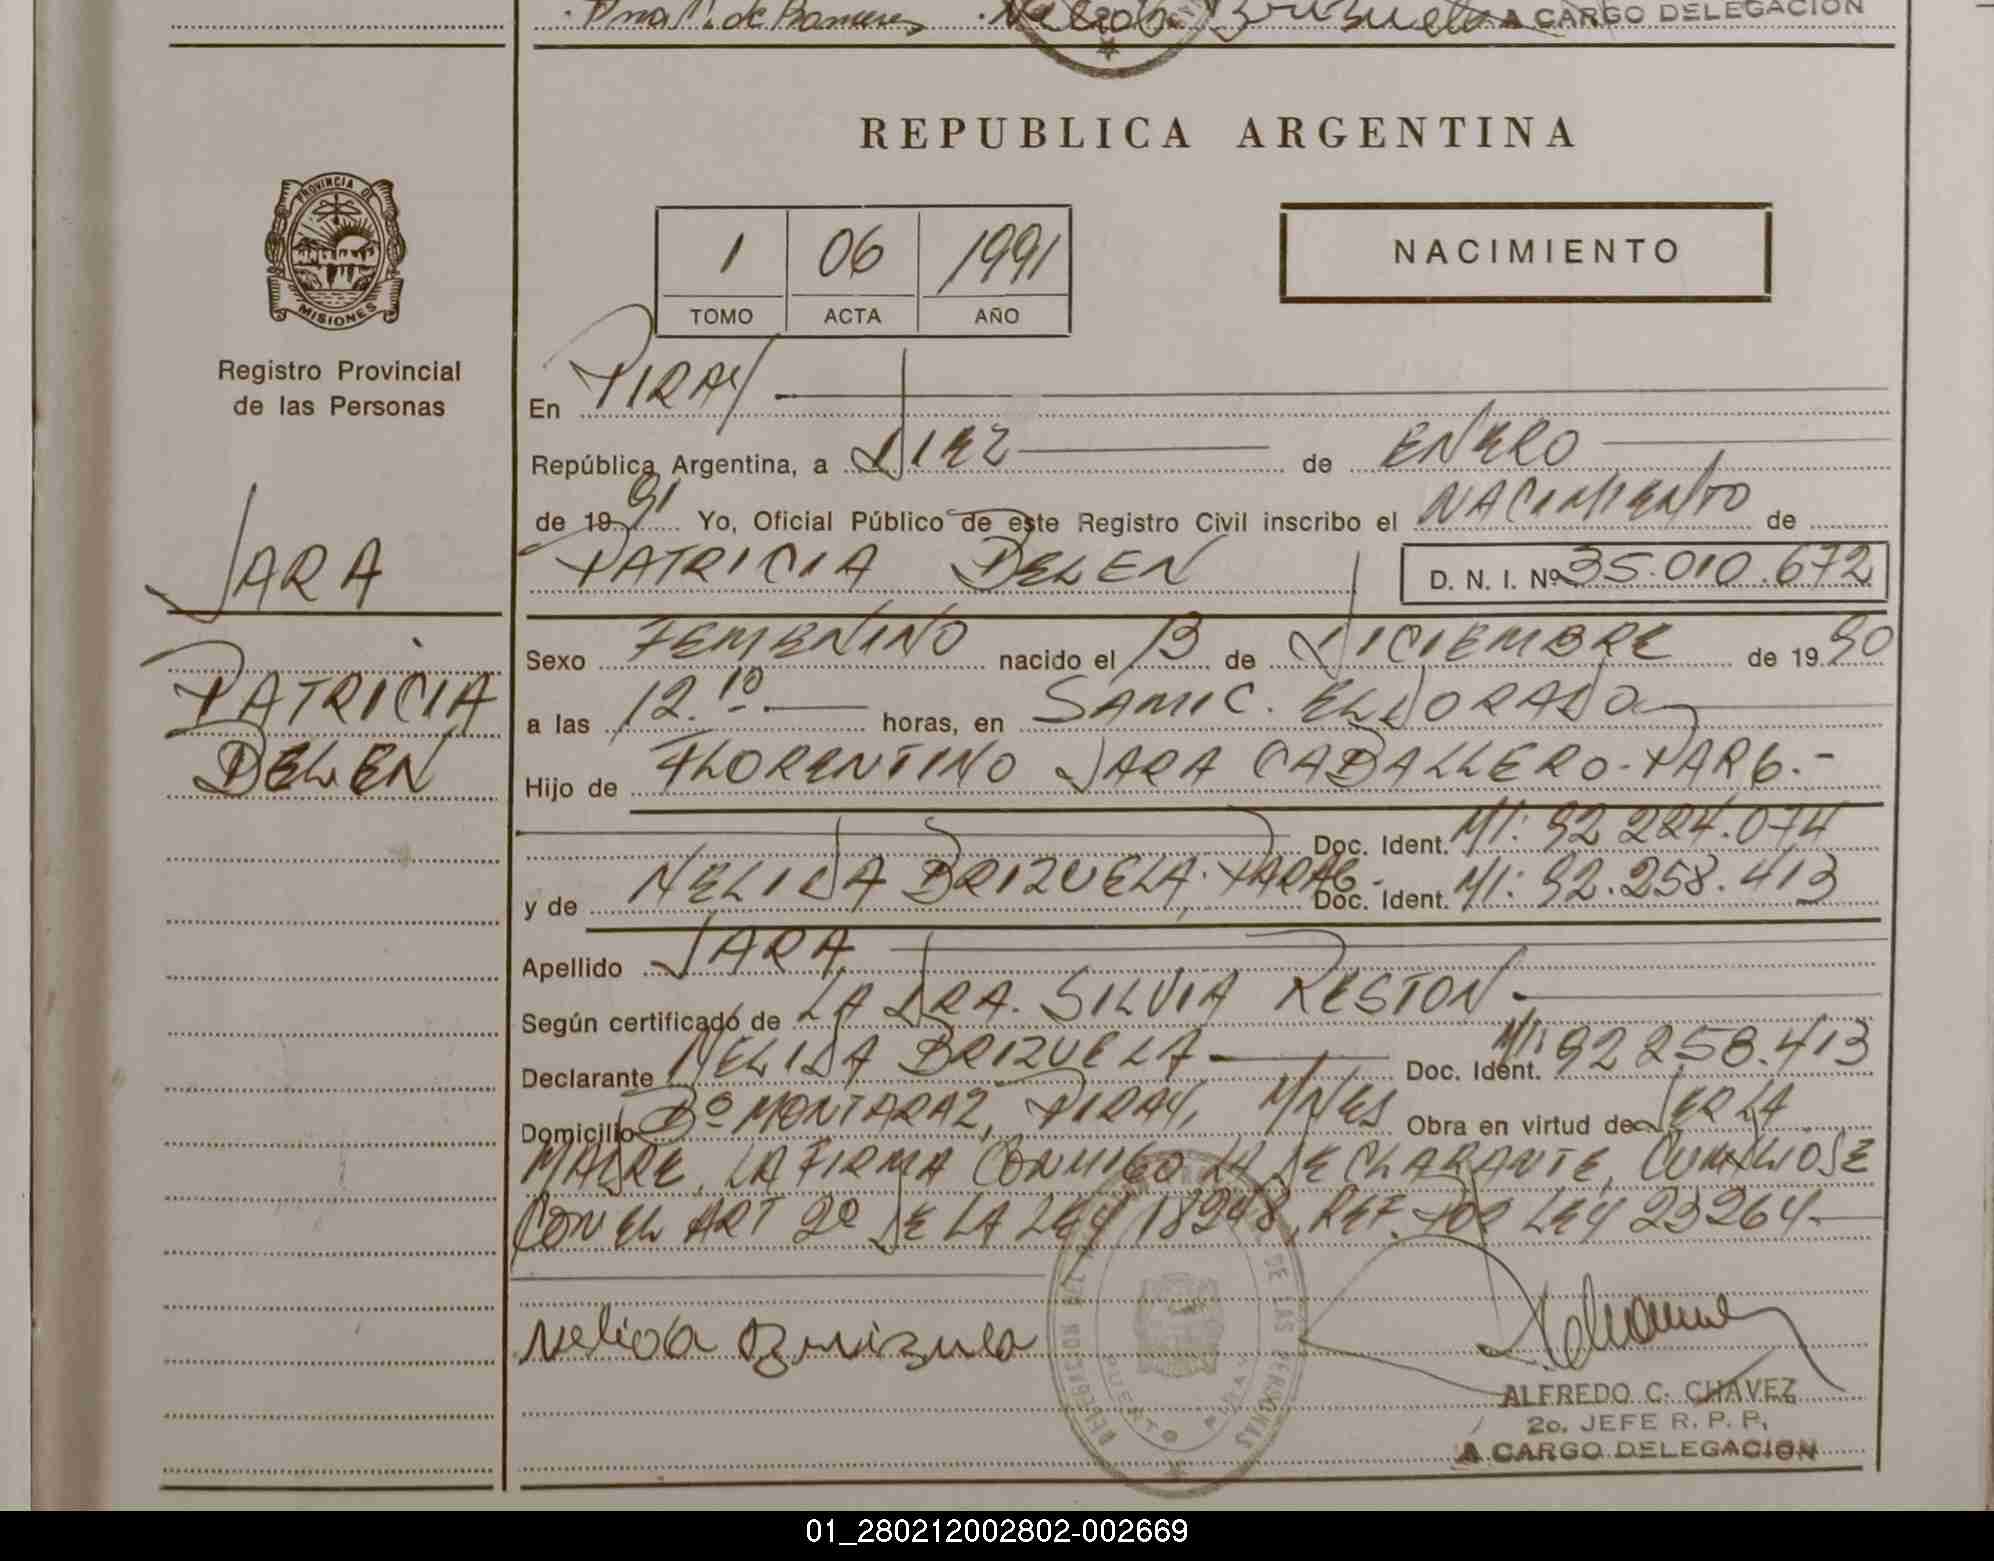 A CARGO DELEGACION
REPUBLICA ARGENTINA
PROVINCIA DE
MISIONES
Registro Provincial
de las Personas
1 06 1991
TOMO ACTA AÑO
NACIMIENTO
En PIRAY
República Argentina, a DIEZ de ENERO
de 1991 Yo, Oficial Público de este Registro Civil inscribo el NACIMIENTO de
JARA
PATRICIA BELEN D. N. I. Nº 35.010.672
Sexo FEMENINO nacido el 13 de DICIEMBRE de 1990
PATRICIA
a las 12.10 horas, en SAMIC. ELDORADO
BELEN
Hijo de FLORENTINO JARA CABALLERO-PARG.-
Doc. Ident. MI: 92 224.074
y de NELIDA BRIZUELA. PARAG- Doc. Ident. MI: 92.258.413
Apellido JARA
Según certificado de LA DRA. SILVIA RESTON.
Declarante NELIDA BRIZUELA Doc. Ident. MI: 92 258.413
Domicilio Bº MONTARAZ, PIRAY, MNES Obra en virtud de SER LA
MADRE, LA FIRMA CONMIGO LA DECLARANTE, CUMPLIOSE
CON EL ART 2º DE LA LEY 18248, REF. POR LEY 23264.
Nelida Brizuela
DE LAS PERSONAS
PUERTO PIRAY
ALFREDO C. CHAVEZ
2o. JEFE R. P. P.
A CARGO DELEGACION
01_280212002802-002669